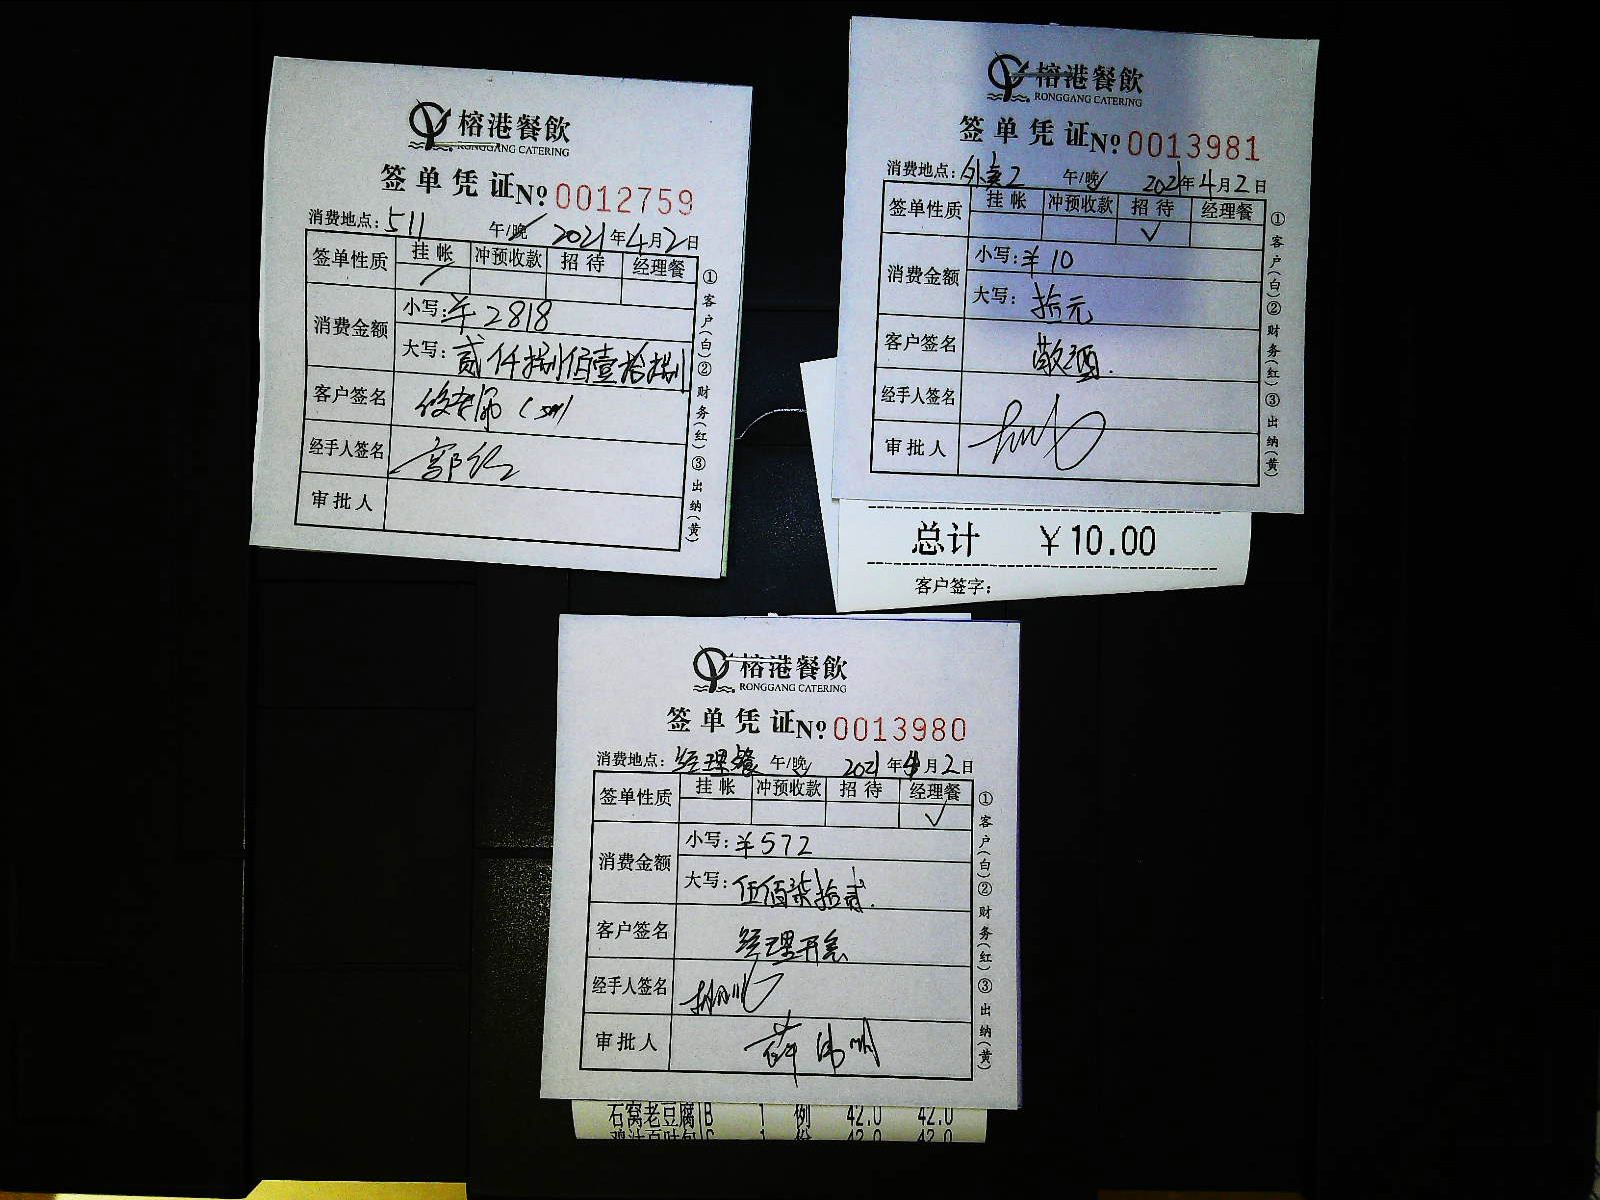 榕港餐飲
RONGGANG CATERING
签单凭证 Nº 0012759
消费地点: 511 午/晚 2021年4月2日
签单性质 挂帐 冲预收款 招待 经理餐
消费金额 小写: ¥2818
大写: 贰仟捌佰壹拾捌
客户签名
经手人签名
审批人
①客户(白)②财务(红)③出纳(黄)
榕港餐飲
RONGGANG CATERING
签单凭证 Nº 0013981
消费地点: 外卖2 午/晚 2021年4月2日
签单性质 挂帐 冲预收款 招待 经理餐
✓
消费金额 小写: ¥10
大写: 拾元
客户签名 敬酒.
经手人签名
审批人
①客户(白)②财务(红)③出纳(黄)
总计 ¥10.00
客户签字:
榕港餐飲
RONGGANG CATERING
签单凭证 Nº 0013980
消费地点: 经理餐 午/晚 2021年4月2日
签单性质 挂帐 冲预收款 招待 经理餐
✓
消费金额 小写: ¥572
大写: 伍佰柒拾贰.
客户签名 经理开会
经手人签名
审批人
①客户(白)②财务(红)③出纳(黄)
石窝老豆腐|B 1 例 42.0 42.0